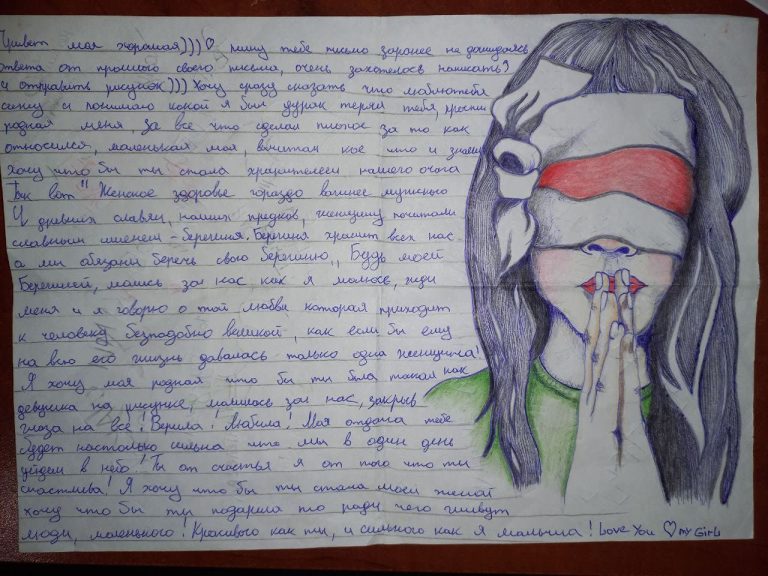 Привет моя хорошая)))♡ пишу тебе письмо заранее не дождавшись
ответа от прошлого своего письма, очень захотелось написать)
и отправить рисунок))) Хочу сразу сказать что люблю тебя
сижу и понимаю какой я был дурак теряя тебя, прости
родная меня, за все что сделал плохое за то как
относился, маленькая моя, вычитал кое что и знаешь
хочу что бы ты стала хранителем нашего очага
Так вот" Женское здоровье гораздо важнее мужского
У древних славян, наших предков, женщину почитали
славным именем - берегиня. Берегиня хранит всех нас
а мы обязаны беречь свою берегиню„ Будь моей
Берегиней, молись за нас, как я молюсь, жди
меня и я говорю о той любви которая приходит
к человеку безподобно великой, как если бы ему
на всю его жизнь давалась только одна женщина!
Я хочу моя родная что бы ты была такой как
девушка на рисунке, молилась за нас, закрыв
глаза на все! Верила! Любила! Моя отдача тебе
будет настолько сильна что мы в один день
уйдем в небо! Ты от счастья я от того что ты
счастлива! Я хочу что бы ты стала моей женой
хочу что бы ты подарила то ради чего живут
люди, маленького! Красивого как ты, и сильного как я мальчиша! Love You ♡ my GirL